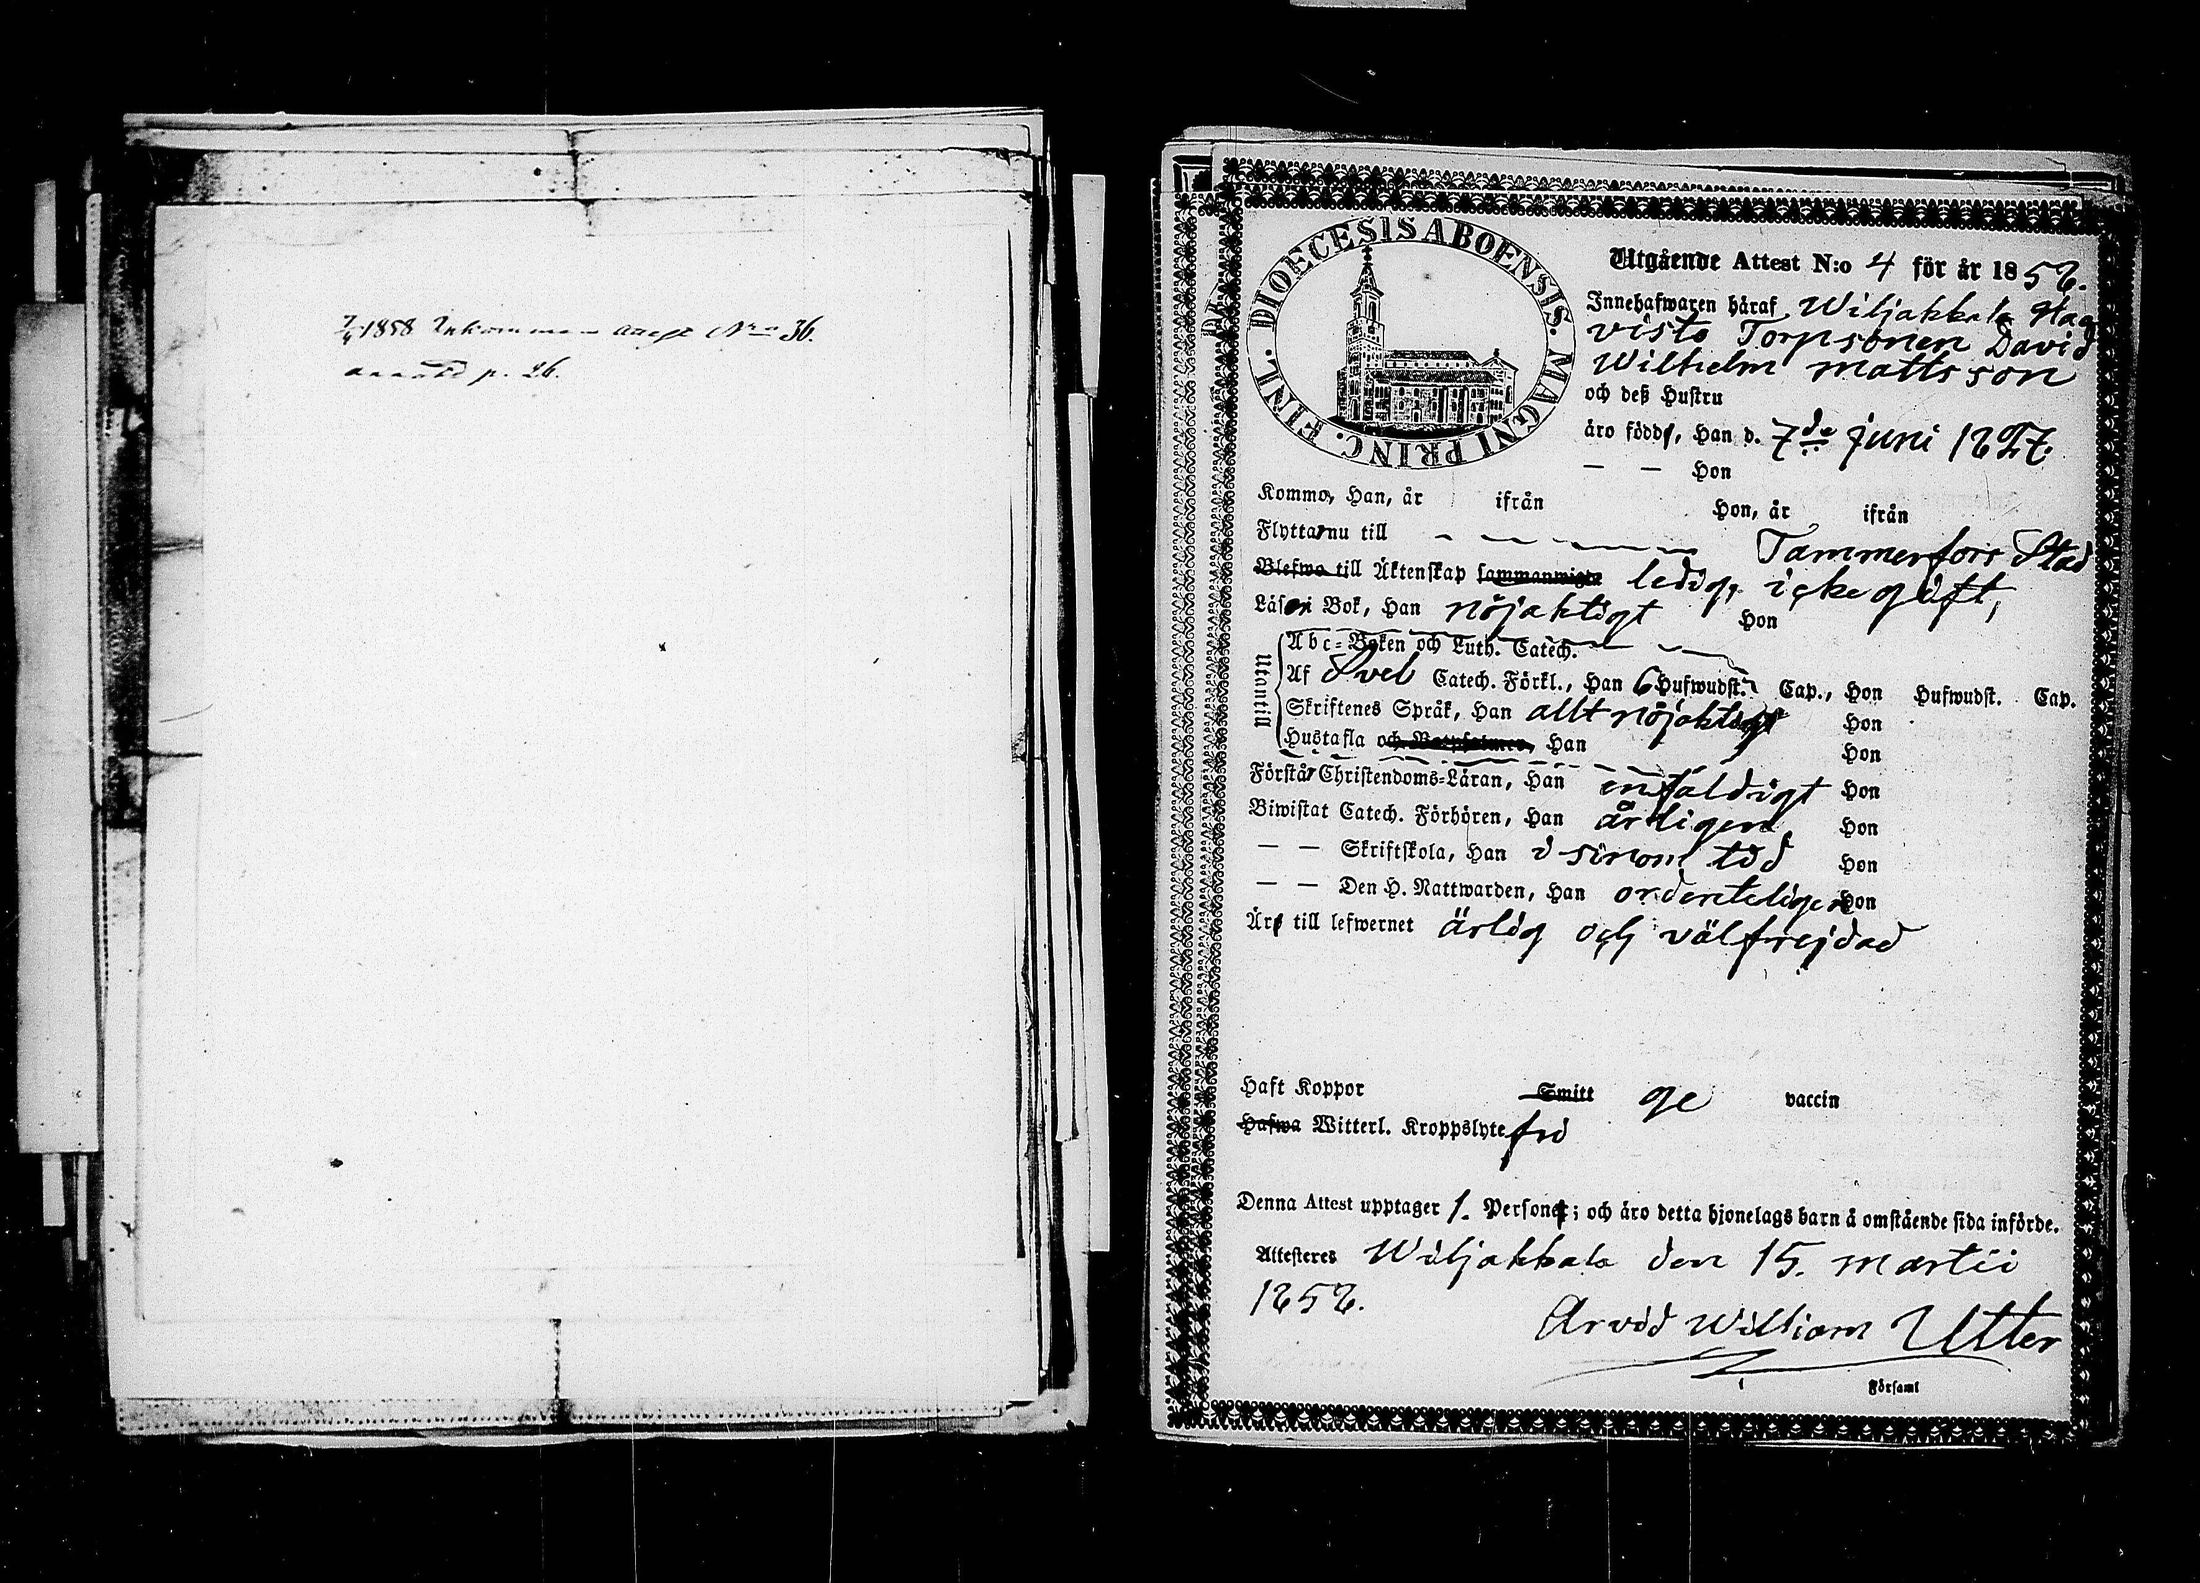 7/4 1858 Inkommen attest No 36.
p. 26.
DIOECESIS ABOENSIS. MAGNI PRINC. FINL.
Utgående Attest N:o 4 för år 1858.
Innehafwaren häraf Wiljakkala Haa
visto Torpsonen David
Wilhelm Mattsson
och deß Hustru
äro född, Han d. 7de Juni 1827.
— — Hon
Kommo, Han, år ifrån Hon, år ifrån
Flytta nu till Tammerfors Stad
Blefwo till Äktenskap sammanwigte ledig, icke gift,
Läser i Bok, Han nöjaktigt Hon
Utantill
Abc-Boken och Luth. Catech.
Af Svel Catech. Förkl., Han 6 Hufwudst. Cap., Hon Hufwudst. Cap.
Skriftenes Språk, Han allt nöjaktigt Hon
Hustafla och Han Hon
Förstår Christendoms-Läran, Han enfaldigt Hon
Biwistat Catech. Förhören, Han årligen Hon
— — Skriftskola, Han i sinom tid Hon
— — Den H. Nattwarden, Han ordenteligen Hon
Är till lefwernet ärlig och välfrejdad
Haft Koppor Smitt ge vaccin
Hafwa Witterl. Kroppslyte fri
Denna Attest upptager 1. Person; och äro detta hjonelags barn å omstående sida införde.
Attesteres Wiljakkala den 15. Martii
1858.
Arvid William Utter
Församl